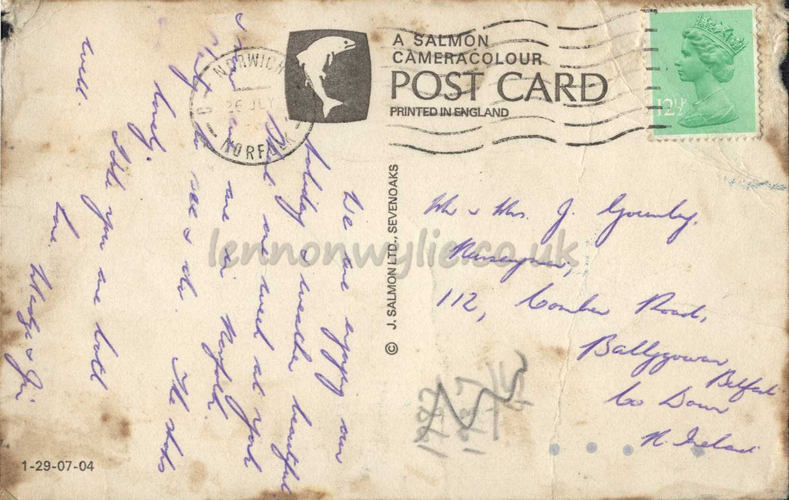 A SALMON
CAMERACOLOUR
POST CARD
PRINTED IN ENGLAND
NORWICH
26 JLY
NORFOLK
12½P
We are enjoying our
holiday & weather beautiful
one week at York
& now we are in Norfolk.
to see the The shops
lovely.
Hope you are both
well.
Love, & Jim
© J. SALMON LTD., SEVENOAKS
Mr & Mrs. J. Gourley,
112, Comber Road,
Ballygowan
Belfast
Co Down
N. Ireland
1-29-07-04
lennonwylie.co.uk